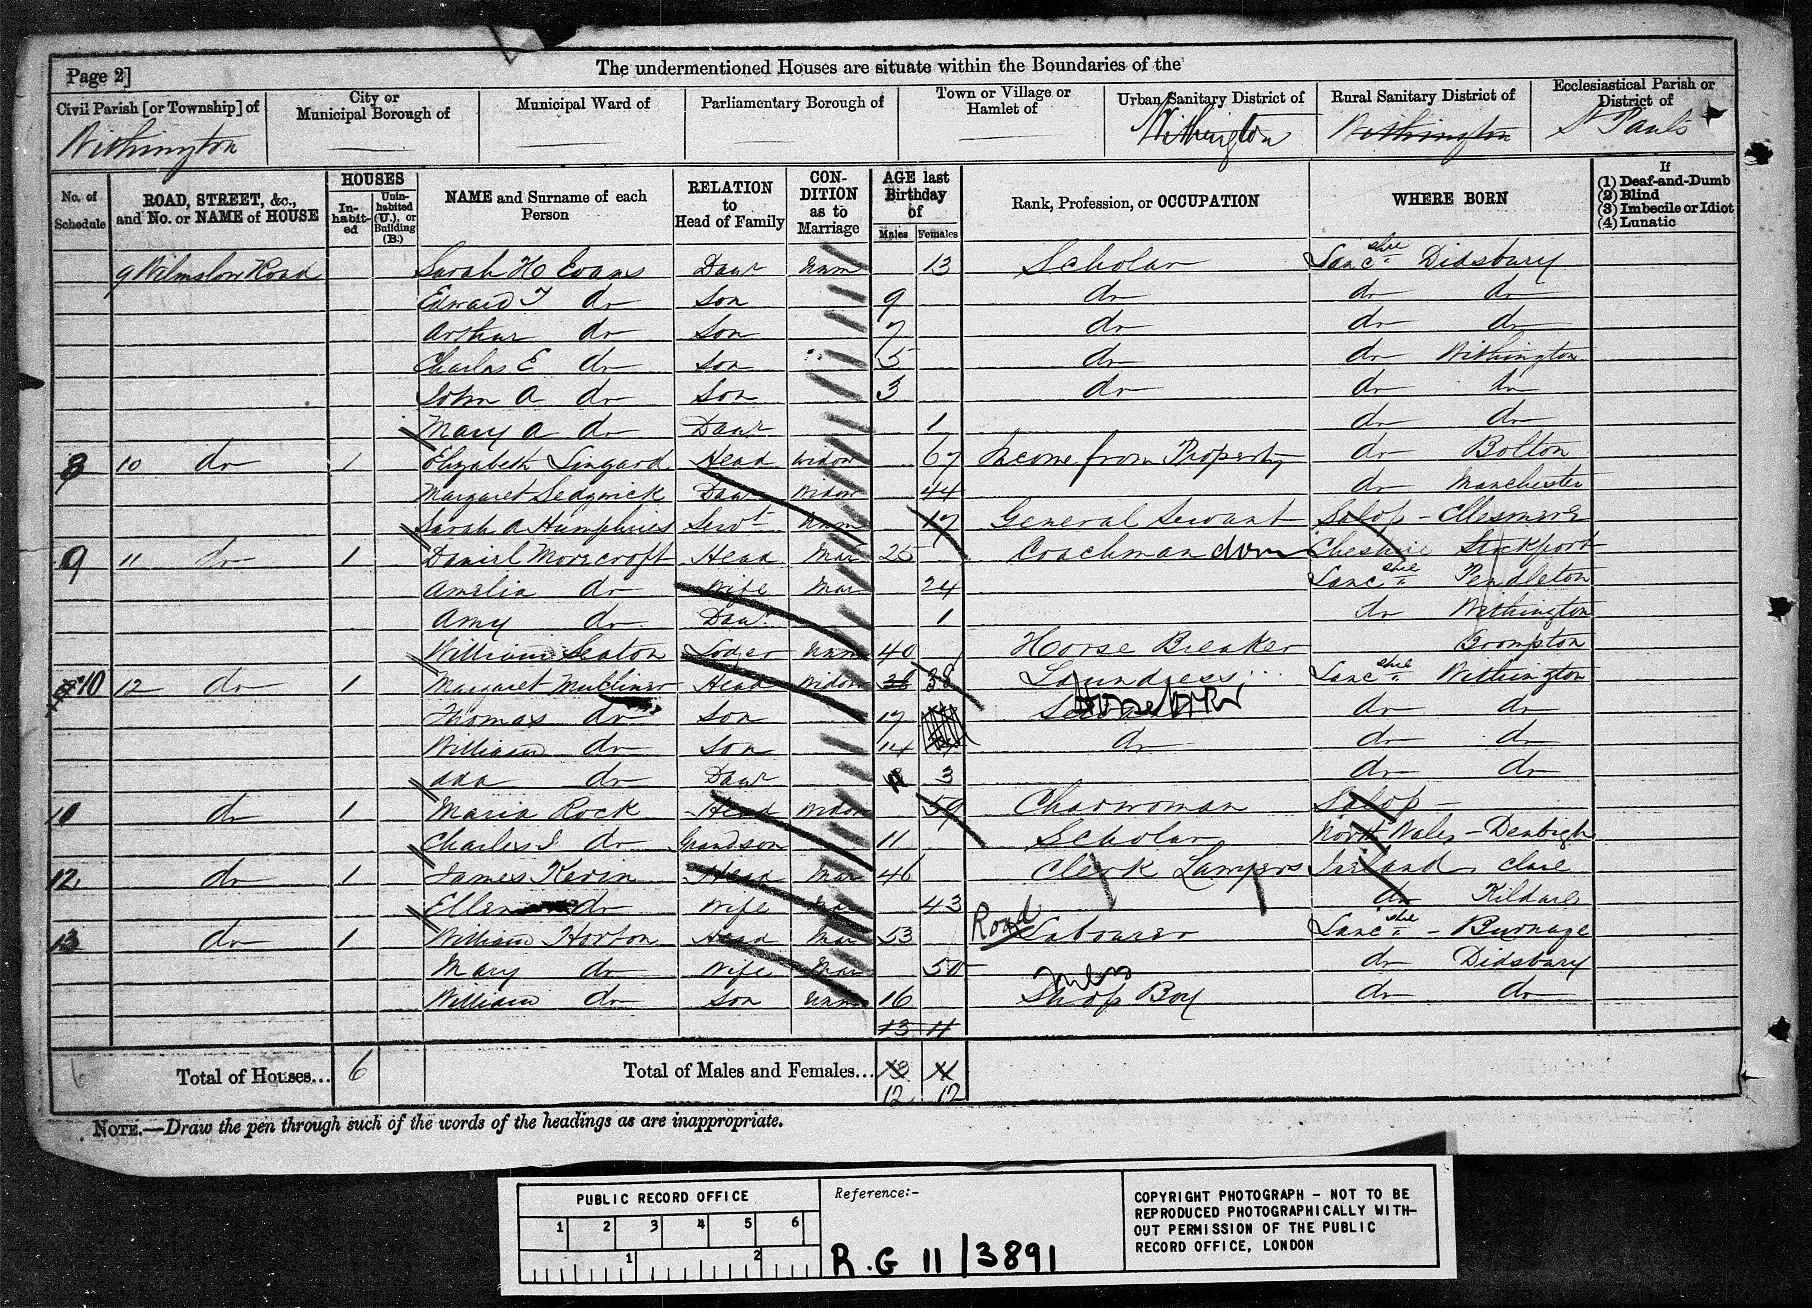 Page 2]
The undermentioned Houses are situate within the Boundaries of the
Civil Parish [or Township] of
City or Municipal Borough of
Municipal Ward of
Parliamentary Borough of
Town or Village or Hamlet of
Urban Sanitary District of
Rural Sanitary District of
Ecclesiastical Parish or District of
Withington
Withington
Withington
St Pauls
No. of Schedule
ROAD, STREET, &c., and No. or NAME of HOUSE
HOUSES
In-habit-ed
Unin-habited (U.), or Building (B.)
NAME and Surname of each Person
RELATION to Head of Family
CON-DITION as to Marriage
AGE last Birthday of
Males
Females
Rank, Profession, or OCCUPATION
WHERE BORN
If
(1) Deaf-and-Dumb
(2) Blind
(3) Imbecile or Idiot
(4) Lunatic
9 Wilmslow Road Sarah H Evans Daur Unm 13 Scholar Lancshire Didsbury
Edward T do Son 9 do do do
Arthur do Son 7 do do do
Charles E do Son 5 do do Withington
John A do Son 3 do do do
Mary A do Daur 1 do do
8 10 do 1 Elizabeth Lingard Head Widow 67 Income from Property do Bolton
Margaret Sedgwick Daur Widow 44 do Manchester
Sarah A Humphries Servt Unm 17 General Servant Salop - Ellesmere
9 11 do 1 Daniel Moorcroft Head Mar 25 Coachman dom Cheshire Stockport
Amelia do Wife Mar 24 Lancshire Pendleton
Amy do Daur 1 do Withington
William Seaton Lodger Unm 40 Horse Breaker Brompton
10 12 do 1 Margaret Head Widow 38 38 Laundress Lancshire Withington
Thomas do Son 17 do do
William do Son 14 do do do
Ada do Daur 3 do do
11 do 1 Maria Rock Head Widow 59 Charwoman Salop -
Charles J do Grandson 11 Scholar North Wales - Denbigh
12 do 1 James Kevin Head Mar 46 Clerk Lawyers Ireland, Clare
Ellen do Wife Mar 43 do Kildare
13 do 1 William Horton Head Mar 53 Road Labourer Lancshire - Burnage
Mary do Wife Mar 50 do Didsbury
William do Son Unm 16 Shop Boy do do
13 11
Total of Houses... 6
Total of Males and Females... 13 11
12 12
NOTE.—Draw the pen through such of the words of the headings as are inappropriate.
PUBLIC RECORD OFFICE
1 2 3 4 5 6
1 2
Reference:-
R.G 11/3891
COPYRIGHT PHOTOGRAPH - NOT TO BE
REPRODUCED PHOTOGRAPHICALLY WITH-
OUT PERMISSION OF THE PUBLIC
RECORD OFFICE, LONDON